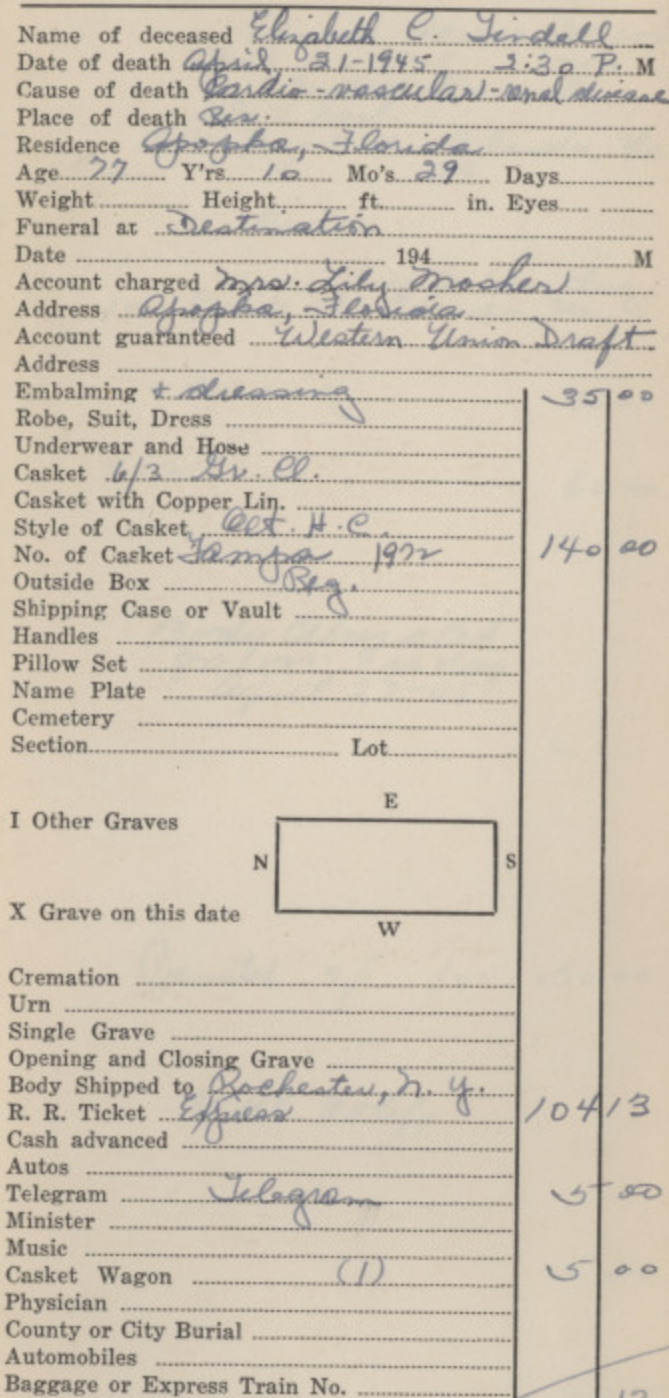 Name of deceased Elizabeth C. Tindall
Date of death April 21-1945 2:30 P. M
Cause of death Cardio-vascular-renal disease
Place of death Res.
Residence Apopka, Florida
Age 77 Y'rs. 10 Mo's. 29 Days
Weight Height ft. in. Eyes
Funeral at Destination
Date 194 M
Account charged Mrs. Lily Mosher
Address Apopka, Florida
Account guaranteed Western Union Draft
Address
Embalming & dressing 35 00
Robe, Suit, Dress
Underwear and Hose
Casket 6/3 Gr. Cl.
Casket with Copper Lin.
Style of Casket Oct. H.C.
No. of Casket Tampa 1972 140 00
Outside Box Reg.
Shipping Case or Vault
Handles
Pillow Set
Name Plate
Cemetery
Section Lot
E
I Other Graves
N S
X Grave on this date
W
Cremation
Urn
Single Grave
Opening and Closing Grave
Body Shipped to Rochester, N. Y.
R. R. Ticket Express 104 13
Cash advanced
Autos
Telegram Telegram 5 00
Minister
Music
Casket Wagon (1) 5 00
Physician
County or City Burial
Automobiles
Baggage or Express Train No.